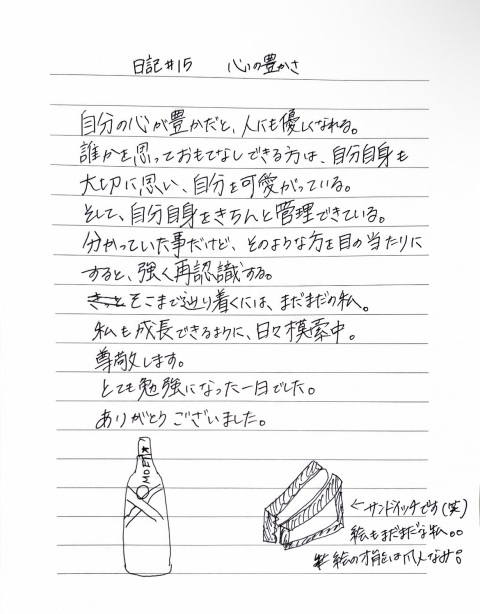 日記#15 心の豊かさ
自分の心が豊かだと、人にも優しくなれる。
誰かを思っておもてなしできる方は、自分自身も
大切に思い、自分を可愛がっている。
そして、自分自身をきちんと管理できている。
分かっていた事だけど、そのような方を目の当たりに
すると、強く再認識する。
そこまで辿り着くには、まだまだの私。
私も成長できるように、日々模索中。
尊敬します。
とても勉強になった一日でした。
ありがとうございました。
MOËT
←サンドイッチです(笑)
絵もまだまだな私。。
絵の才能は爪人なみ。